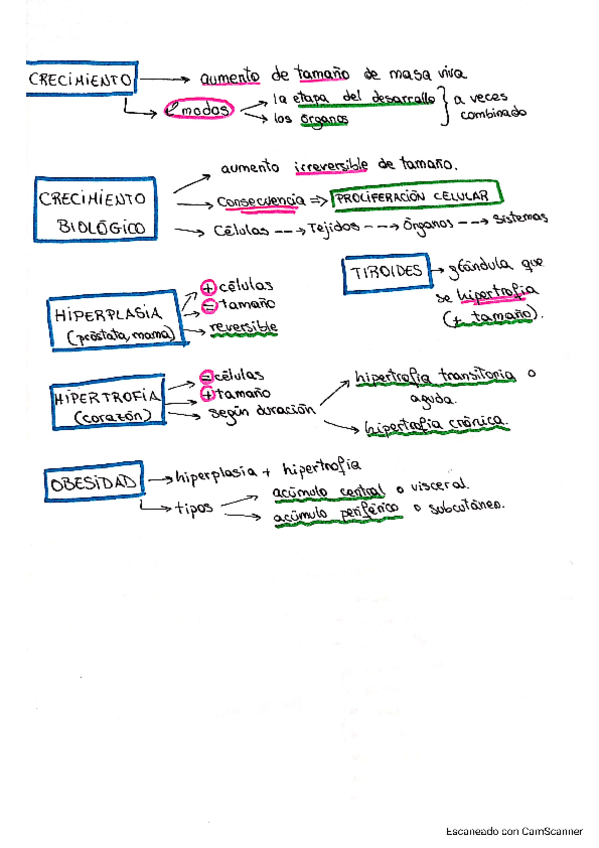 CRECIMIENTO → aumento de tamaño de masa viva
2 modos → la etapa del desarrollo } a veces
→ los órganos combinado
aumento irreversible de tamaño.
CRECIMIENTO BIOLÓGICO → Consecuencia => PROLIFERACIÓN CELULAR
→ Células --→ Tejidos --→ Órganos --→ Sistemas
TIROIDES → glándula que
se hipertrofia
(+ tamaño).
HIPERPLASIA
(próstata, mama)
+ células
= tamaño
reversible
HIPERTROFIA
(corazón)
= células
+ tamaño
según duración
hipertrofia transitoria o
aguda.
hipertrofia crónica.
OBESIDAD → hiperplasia + hipertrofia
→ tipos
acúmulo central o visceral.
acúmulo periférico o subcutáneo.
Escaneado con CamScanner